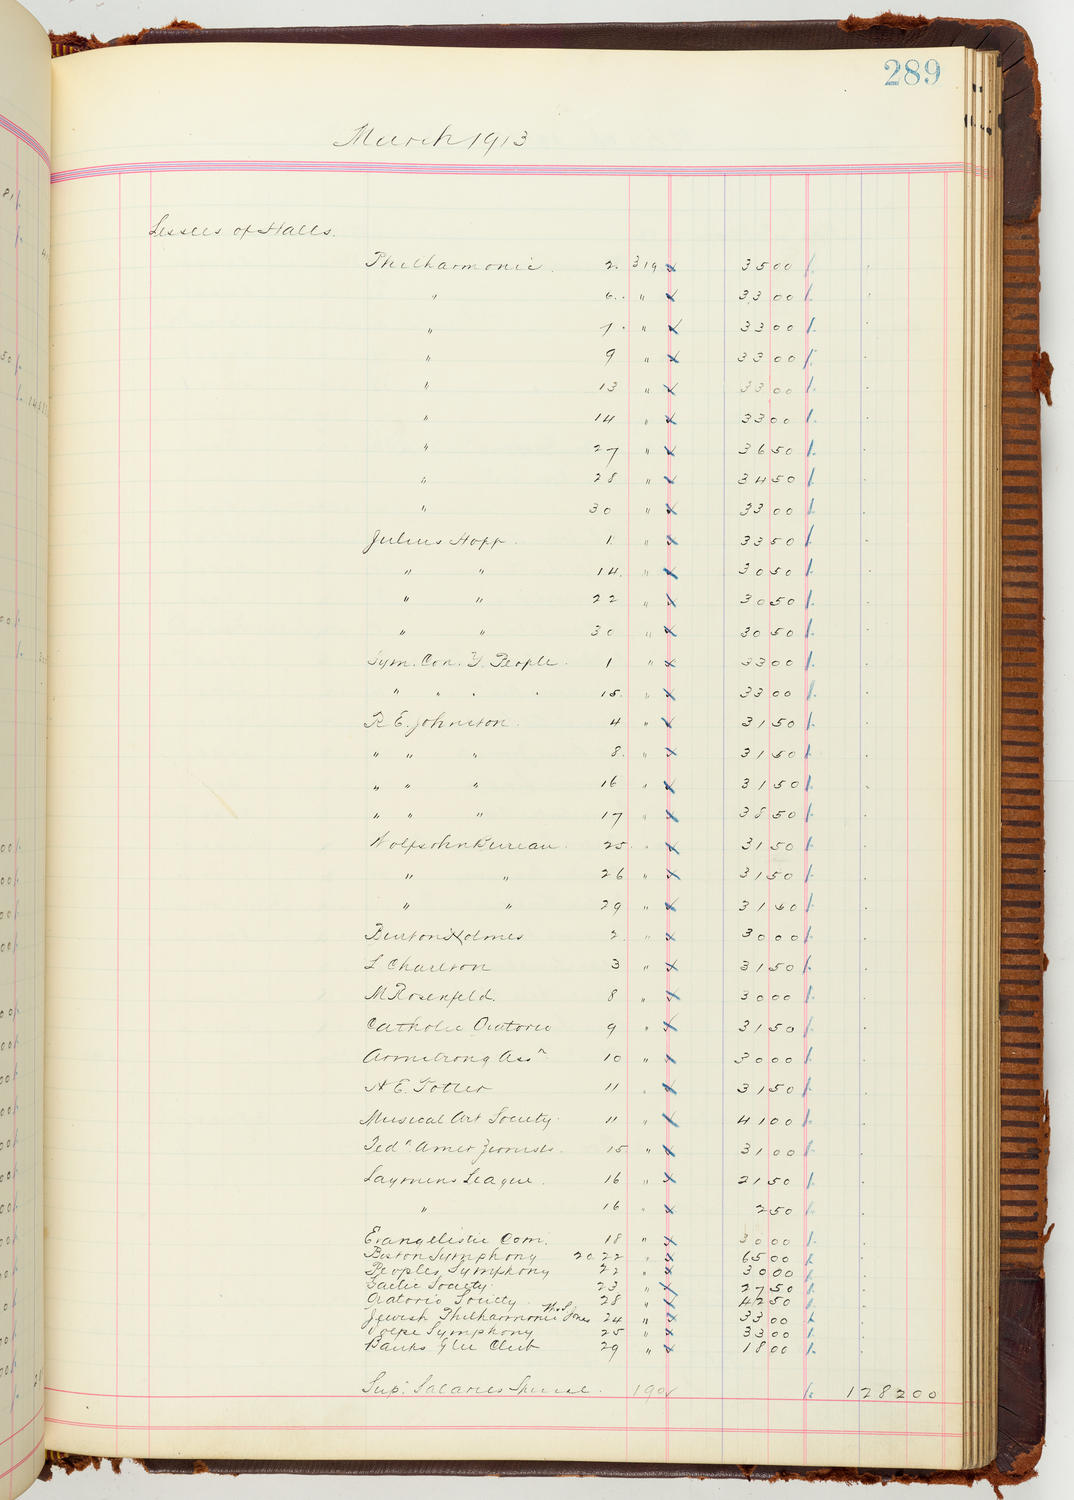 289
March 1913
Lessees of Halls.
Philharmonic. 2. 319 x 3500
" 6. " x 3300
" 7. " x 3300
" 9 " x 3300
" 13 " x 3300
" 14 " x 3300
" 27 " x 3650
" 28 " x 3450
" 30 " x 3300
Julius Hopp. 1. " x 3350
" " 14. " x 3050
" " 22 " x 3050
" " 30 " x 3050
Sym. Con. Y. People. 1 " x 3300
" " " " 15. " x 3300
R. E. Johnston. 4 " x 3150
" " " 8. " x 3150
" " " 16 " x 3150
" " " 17 " x 3850
Wolfsohn Bureau. 25. " x 3150
" " 26 " x 3150
" " 29 " x 3140
Burton Holmes 2. " x 3000
L Charlton 3 " x 3150
M Rosenfeld. 8 " x 3000
Catholic Oratorio 9 " x 3150
Armstrong Assn 10 " x 3000
11 " x 3150
Musical Art Society. 11 " x 4100
Fedn. Amer Zionists. 15 " x 3100
Laymens League. 16 " x 2150
" 16 " x 250
Evangelistic Com. 18 " x 3000
Boston Symphony 20.22 " x 6500
Peoples Symphony 22 " x 3000
Gaelic Society. 23 " x 2750
Oratorio Society. 28 " x 4250
Jewish Philharmonic Th. S. Jones 24 " x 3300
Volpe Symphony 25 " x 3300
Banks Glee Club 29 " x 1800
Sup. Salaries Special. 190 128200